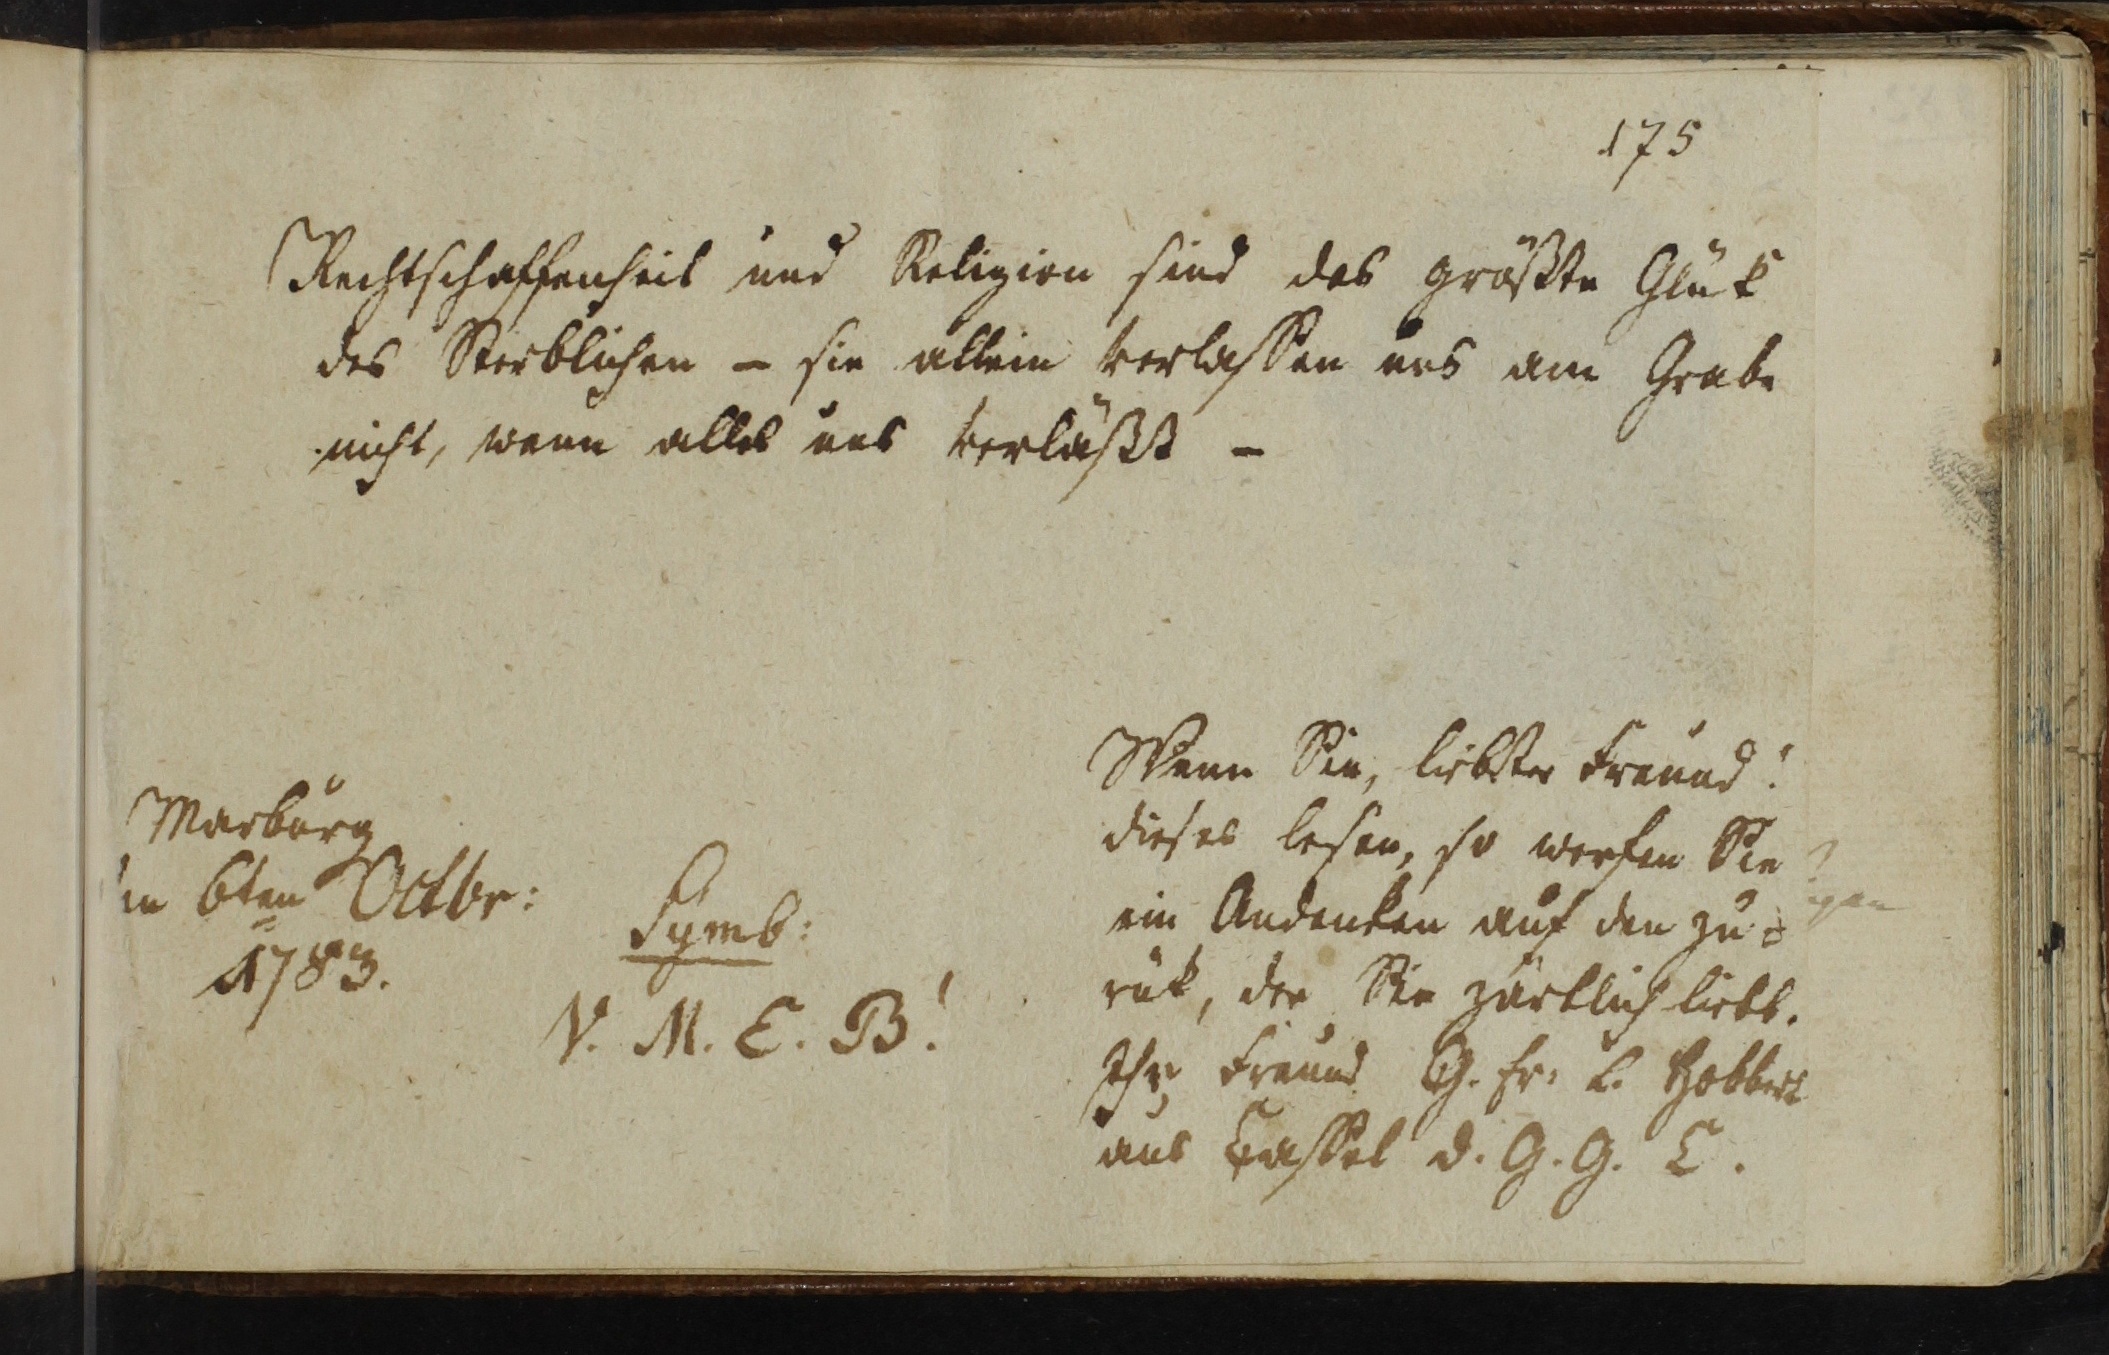 175
Rechtschaffenheit und Religion sind das größte Glük
des Sterblichen – sie allein verlassen uns am Grabe
nicht, wenn alles uns verläßt –
Wenn Sie, liebster Freund!
dieses lesen, so werfen Sie
ein Andenken auf den zu=
rük, der Sie zärtlich liebt.
Ihr Freund G. Fr. L.
aus Cassel d. G. G. C.
Marburg
6ten Octbr:
1783.
Symb:
V. M. E. B!